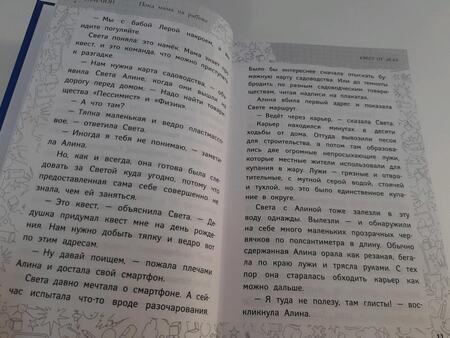 Пока мама на работе
— Мы с бабой Лерой накроем, а вы
идите погуляйте.
Света поняла: это намёк. Мама знает про
квест, и это команда, что можно приступать
к разгадке.
— Нам нужна карта садоводства, — объ-
явила Света Алине, когда они вышли на
дорогу перед домом. — Надо найти товари-
щества «Пессимист» и «Физик».
— А что там?
— Тяпка маленькая и ведро пластмассо-
вое, — ответила Света.
— Иногда я тебя не понимаю, — замети-
ла Алина.
Но, как и всегда, она готова была сле-
довать за Светой куда угодно, потому что
предоставленная сама себе совершенно не
знала, чем ей заняться.
— Это квест, — объяснила Света. — Де-
душка придумал квест мне на день рожде-
ния. Нам нужно добыть тяпку и ведро вот
по этим адресам.
— Ну давай поищем, — пожала плечами
Алина и достала свой смартфон.
Света давно мечтала о смартфоне. А сей-
час испытала что-то вроде разочарования.
КВЕСТ ОТ ДЕДА
Было бы интереснее сначала отыскать бу-
мажную карту садоводства. Или до темноты
бродить по разным садоводческим товари-
ществам, читая надписи на плакатах.
Алина вбила первый адрес и показала
Свете маршрут.
— Ведёт через карьер, — сказала Света.
Карьер находился минутах в десяти
ходьбы от дома. Оттуда вывозили песок
для строительства, а потом там образова-
лись две огромные непросыхающие лужи,
которые местные жители использовали для
купания в жару. Лужи — грязные и отвра-
тительные, с мутной серой водой, стоячей
и тухлой, но это было единственное купа-
ние в округе.
Света с Алиной тоже залезли в эту
воду однажды. Вылезли — и обнаружили
на себе много маленьких прозрачных чер-
вячков по полсантиметра в длину. Обычно
сдержанная Алина орала как резаная, бега-
ла по краю лужи и трясла руками. С тех
пор она старалась обходить карьер как
можно дальше.
— Я туда не полезу, там глисты! — вос-
кликнула Алина.
11